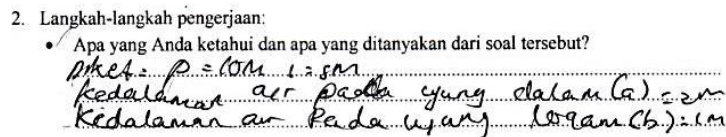 2. Langkah-langkah pengerjaan:
• Apa yang Anda ketahui dan apa yang ditanyakan dari soal tersebut?
Diket : P = 10M l = 5M
Kedalaman air pada ujung dalam (a) = 2m
Kedalaman air Pada ujung (b) = 1m